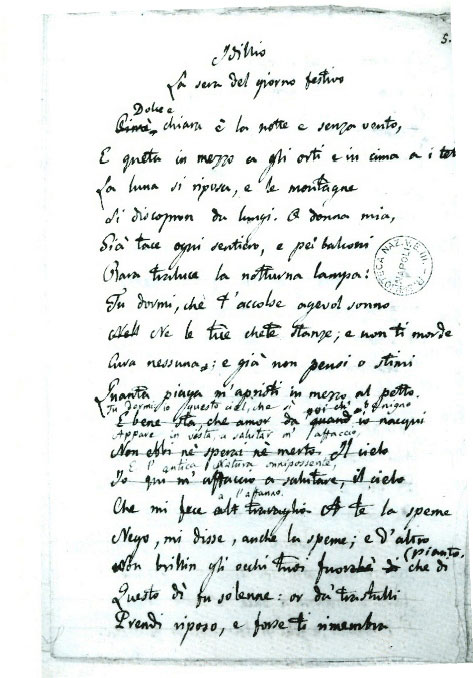 5.
Idillio
La sera del giorno festivo
Dolce e
Oimè, chiara è la notte e senza vento,
E queta in mezzo a gli orti e in cima a i tet
La luna si riposa, e le montagne
Si discopron da lungi. O donna mia,
Già tace ogni sentiero, e pei balconi
Rara traluce la notturna lampa:
Tu dormi, chè t'accolse agevol sonno
Nell Ne le tue chete stanze; e non ti morde
Cura nessuna; e già non pensi o stimi
Quanta piaga m'apristi in mezzo al petto.
Tu dormi, io questo ciel, che sì benigno
E bene sta, che amor da poi ch' quand'io nacqui
Appare in vista, a salutar m'affaccio,
Non ebbi nè sperai nè merto. Il cielo
E l'antica Natura onnipossente,
Io qui m'affaccio a salutare, il cielo
a l'affanno.
Che mi fece al travaglio A te la speme
Nego, mi disse, anche la speme; e d'altro
Non brillin gli occhi tuoi fuorchè di che di
(pianto.
Questo dì fu solenne: or da' trastulli
Prendi riposo, e forse ti rimembra
NAZ. V. E. III
NAPOLI